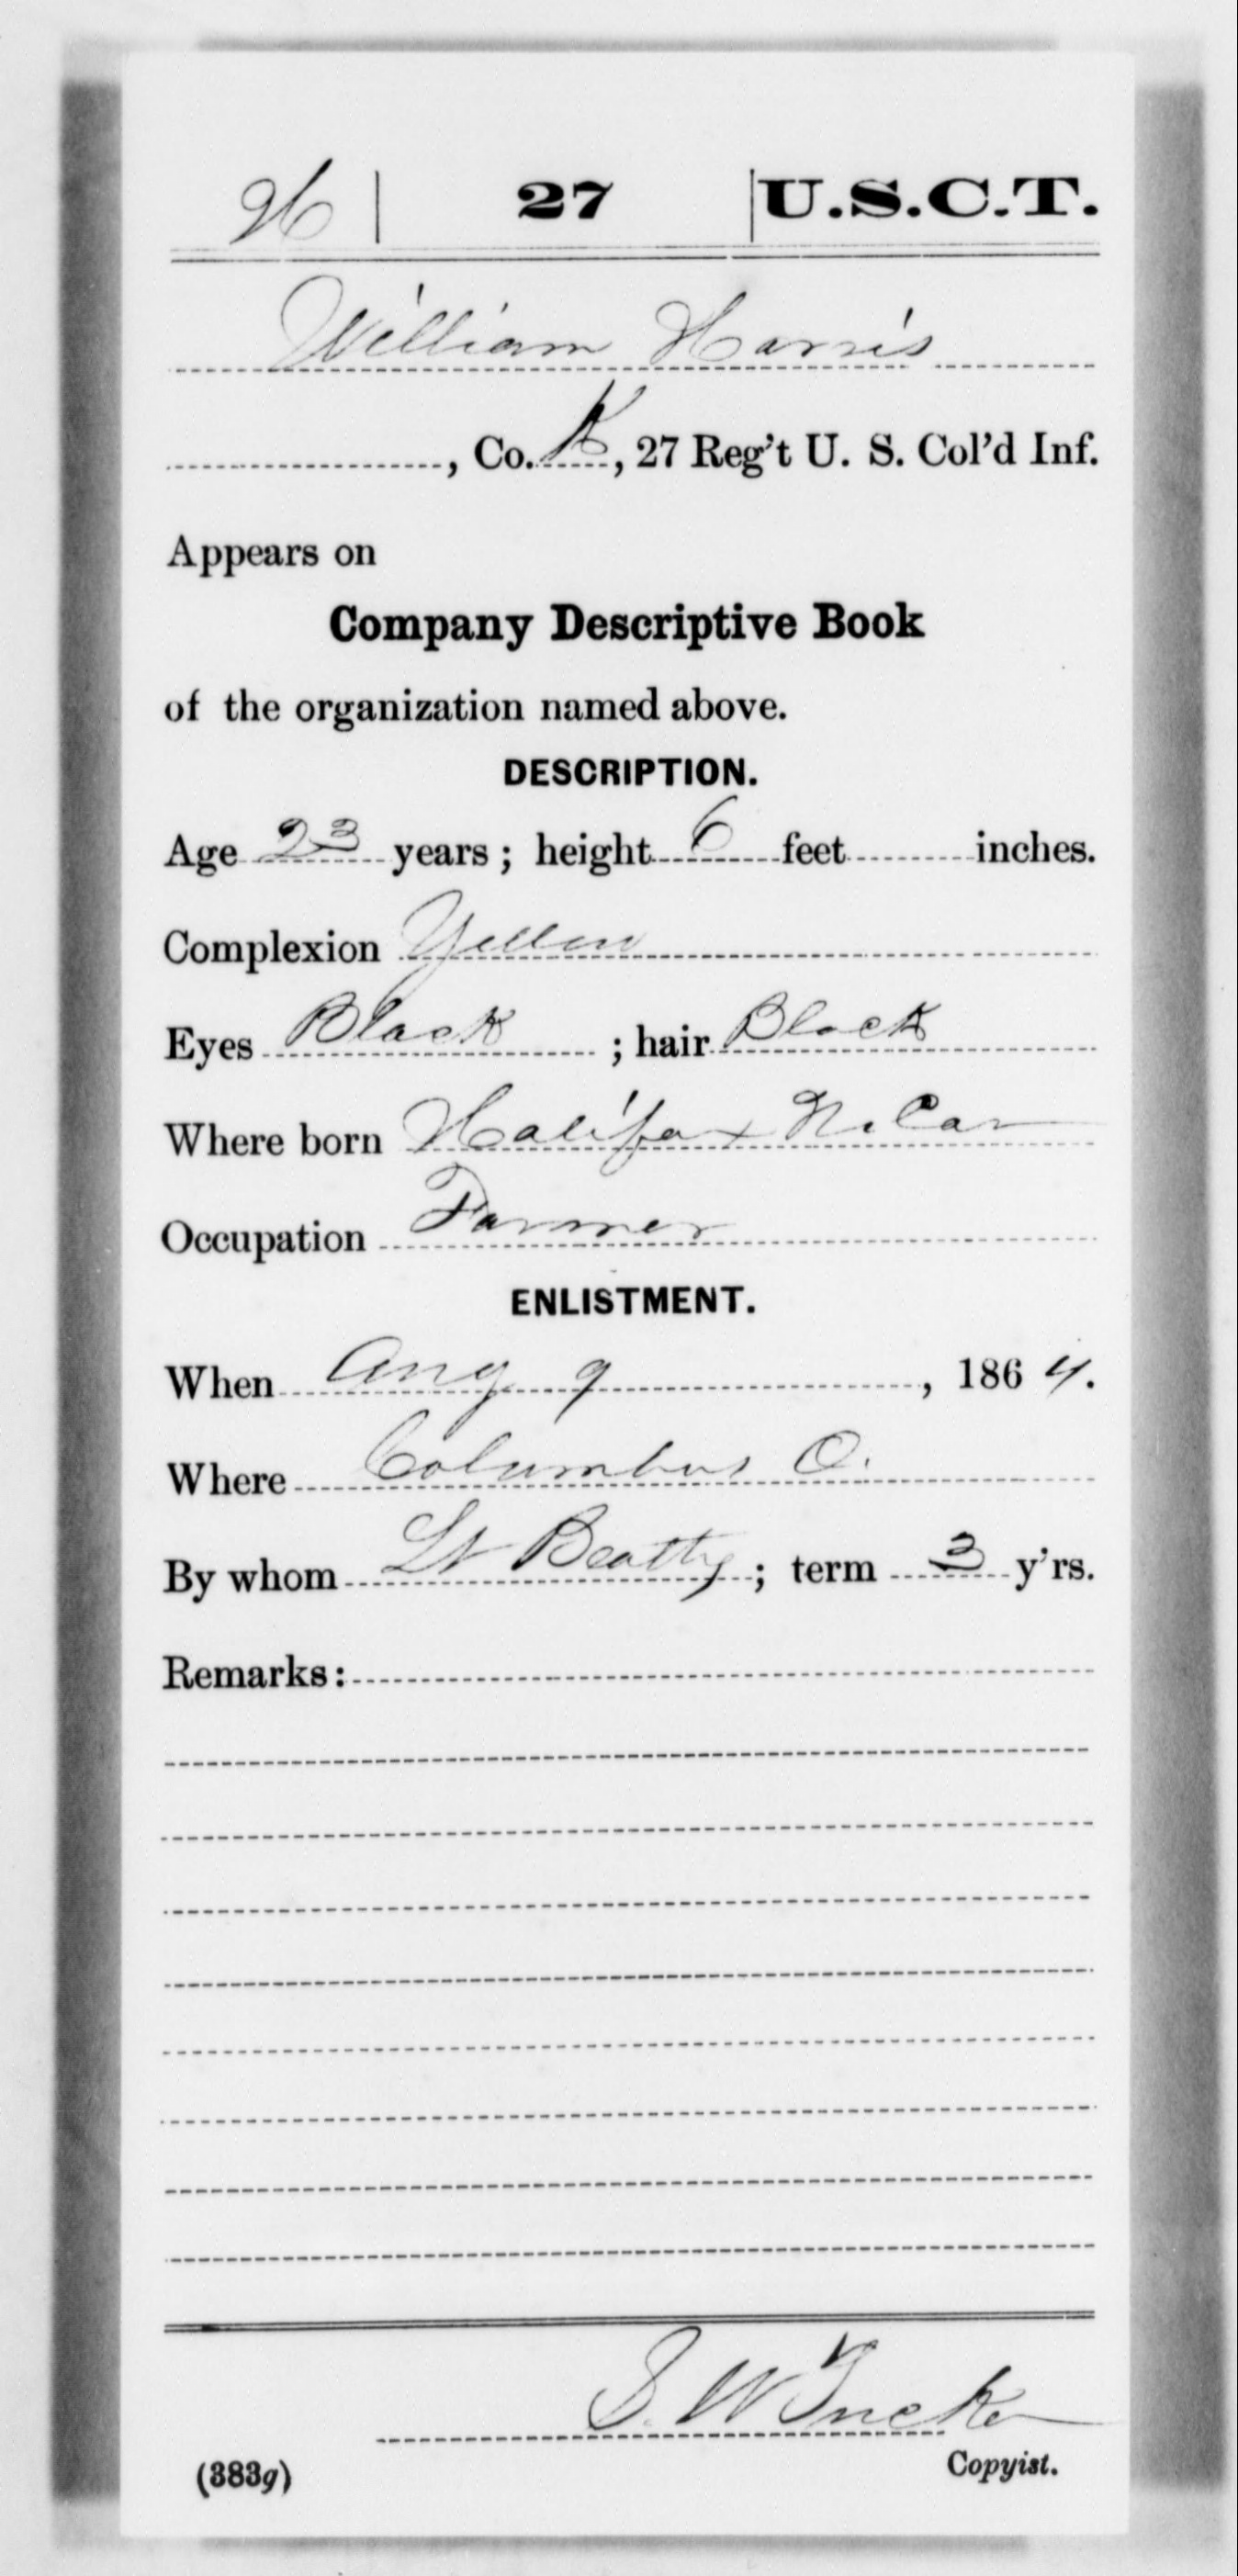 H | 27 | U.S.C.T.
William Harris
, Co. K, 27 Reg't U. S. Col'd Inf.
Appears on
Company Descriptive Book
of the organization named above.
DESCRIPTION.
Age 23 years; height 6 feet inches.
Complexion Yellow
Eyes Black ; hair Black
Where born Halifax N. Car
Occupation Farmer
ENLISTMENT.
When Aug 9, 1864.
Where Columbus O.
By whom Lt Beatty; term 3 y'rs.
Remarks:
S. W. Tucker
(383g)
Copyist.